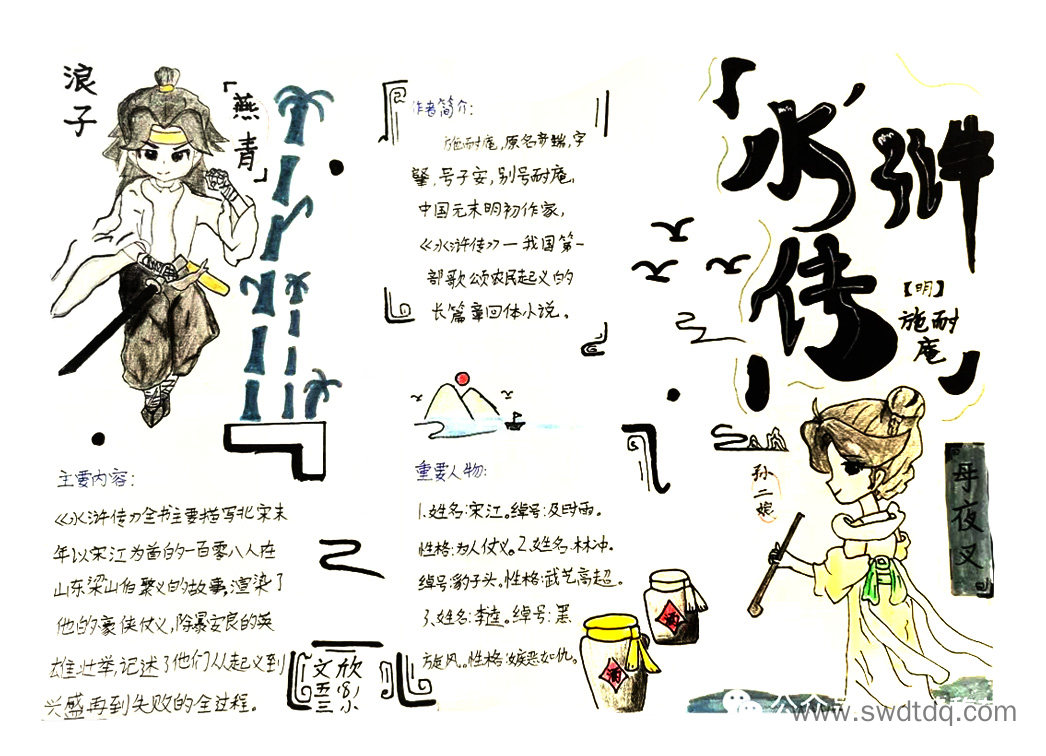 水浒传
【明】
施耐
庵
浪子
「燕青」
作者简介：
施耐庵，原名彦端，字
肇，号子安，别号耐庵，
中国元末明初作家，
《水浒传》一我国第一
部歌颂农民起义的
长篇章回体小说。
主要内容：
《水浒传》全书主要描写北宋末
年以宋江为首的一百零八人在
山东梁山伯聚义的故事，渲染了
他的豪侠仗义，除暴安良的英
雄壮举，记述了他们从起义到
兴盛再到失败的全过程。
重要人物：
1.姓名：宋江。绰号：及时雨。
性格：为人仗义。2.姓名：林冲。
绰号：豹子头。性格：武艺高超。
3.姓名：李逵。绰号：黑
旋风。性格：嫉恶如仇。
孙二娘
母夜叉
酒
酒
文欣
小
三小
www.swdtdq.com